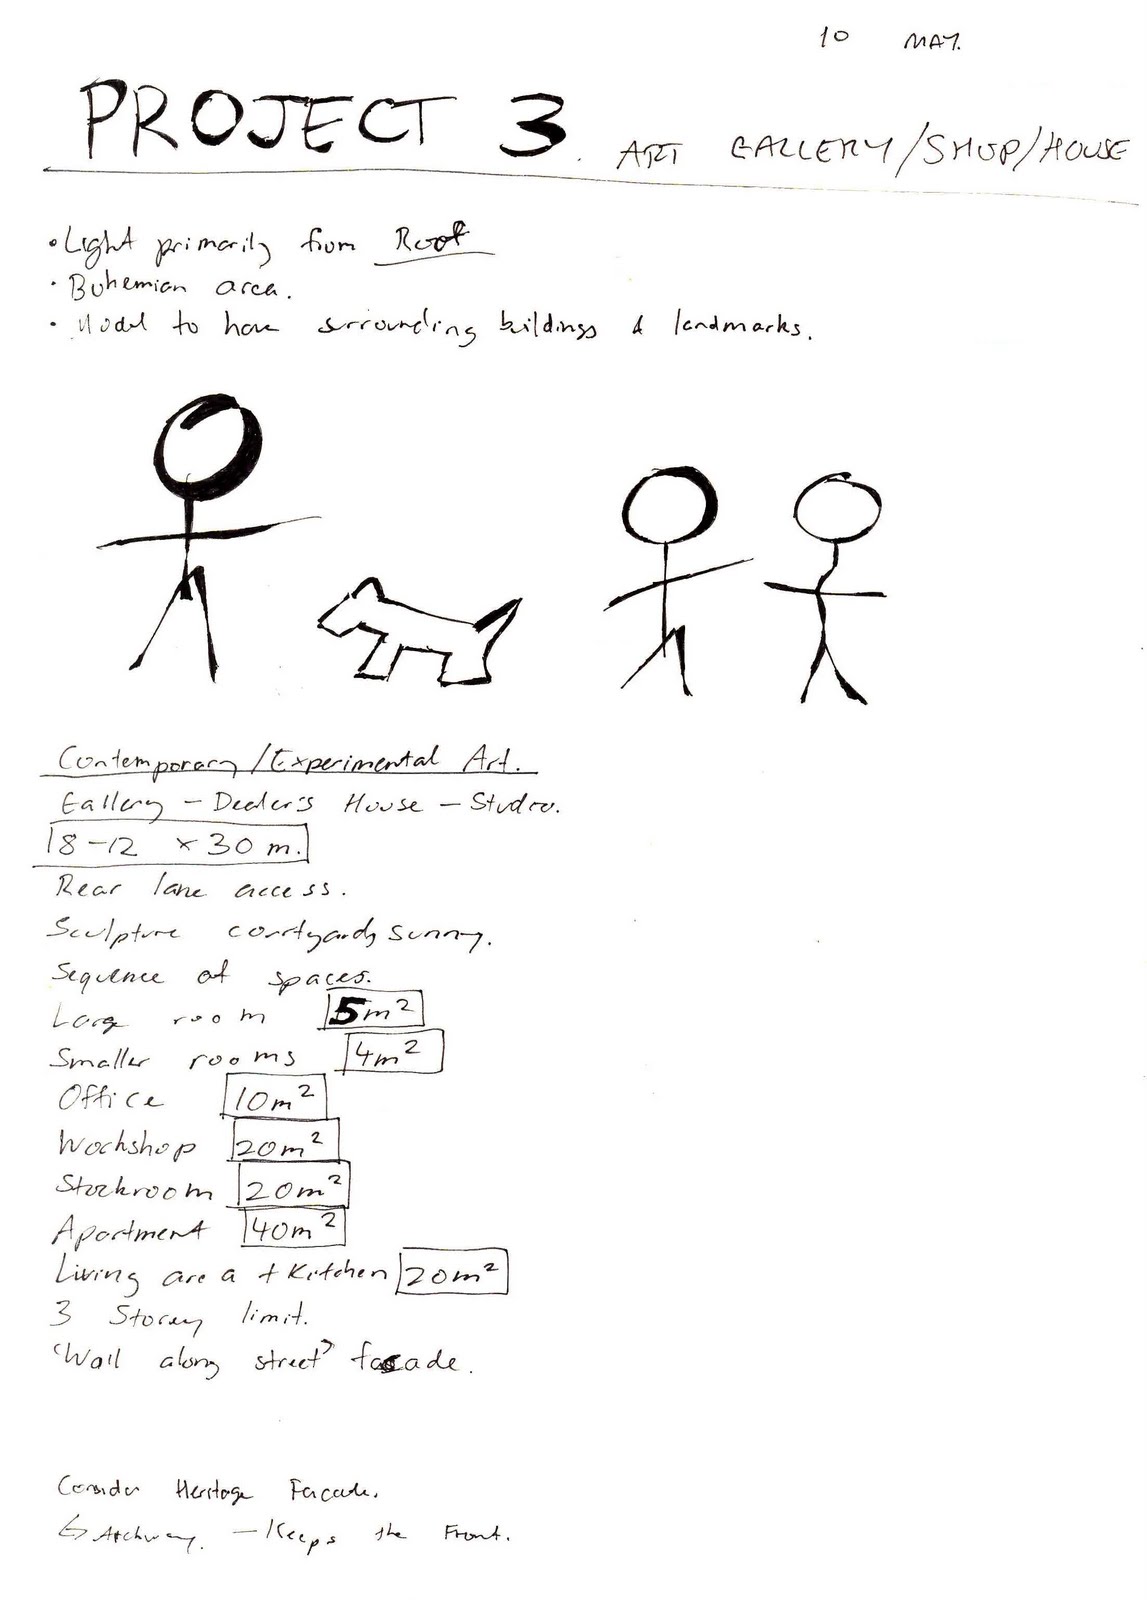 10 MAY.
PROJECT 3. ART GALLERY/SHOP/HOUSE
• Light primarily from Roof
• Bohemian area.
• Model to have surrounding buildings & landmarks.
Contemporary/Experimental Art.
Gallery – Dealer's House – Studio.
18–12 × 30 m.
Rear lane access.
Sculpture courtyards sunny.
Sequence of spaces.
Large room 5m²
Smaller rooms 4m²
Office 10m²
Workshop 20m²
Stockroom 20m²
Apartment 40m²
Living area + Kitchen 20m²
3 Storey limit.
'Wall along street' facade.
Consider Heritage Facade.
↳ Archway. – Keeps the Front.